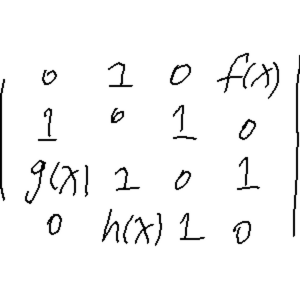 0 1 0 f(x)
1 0 1 0
g(x) 1 0 1
0 h(x) 1 0